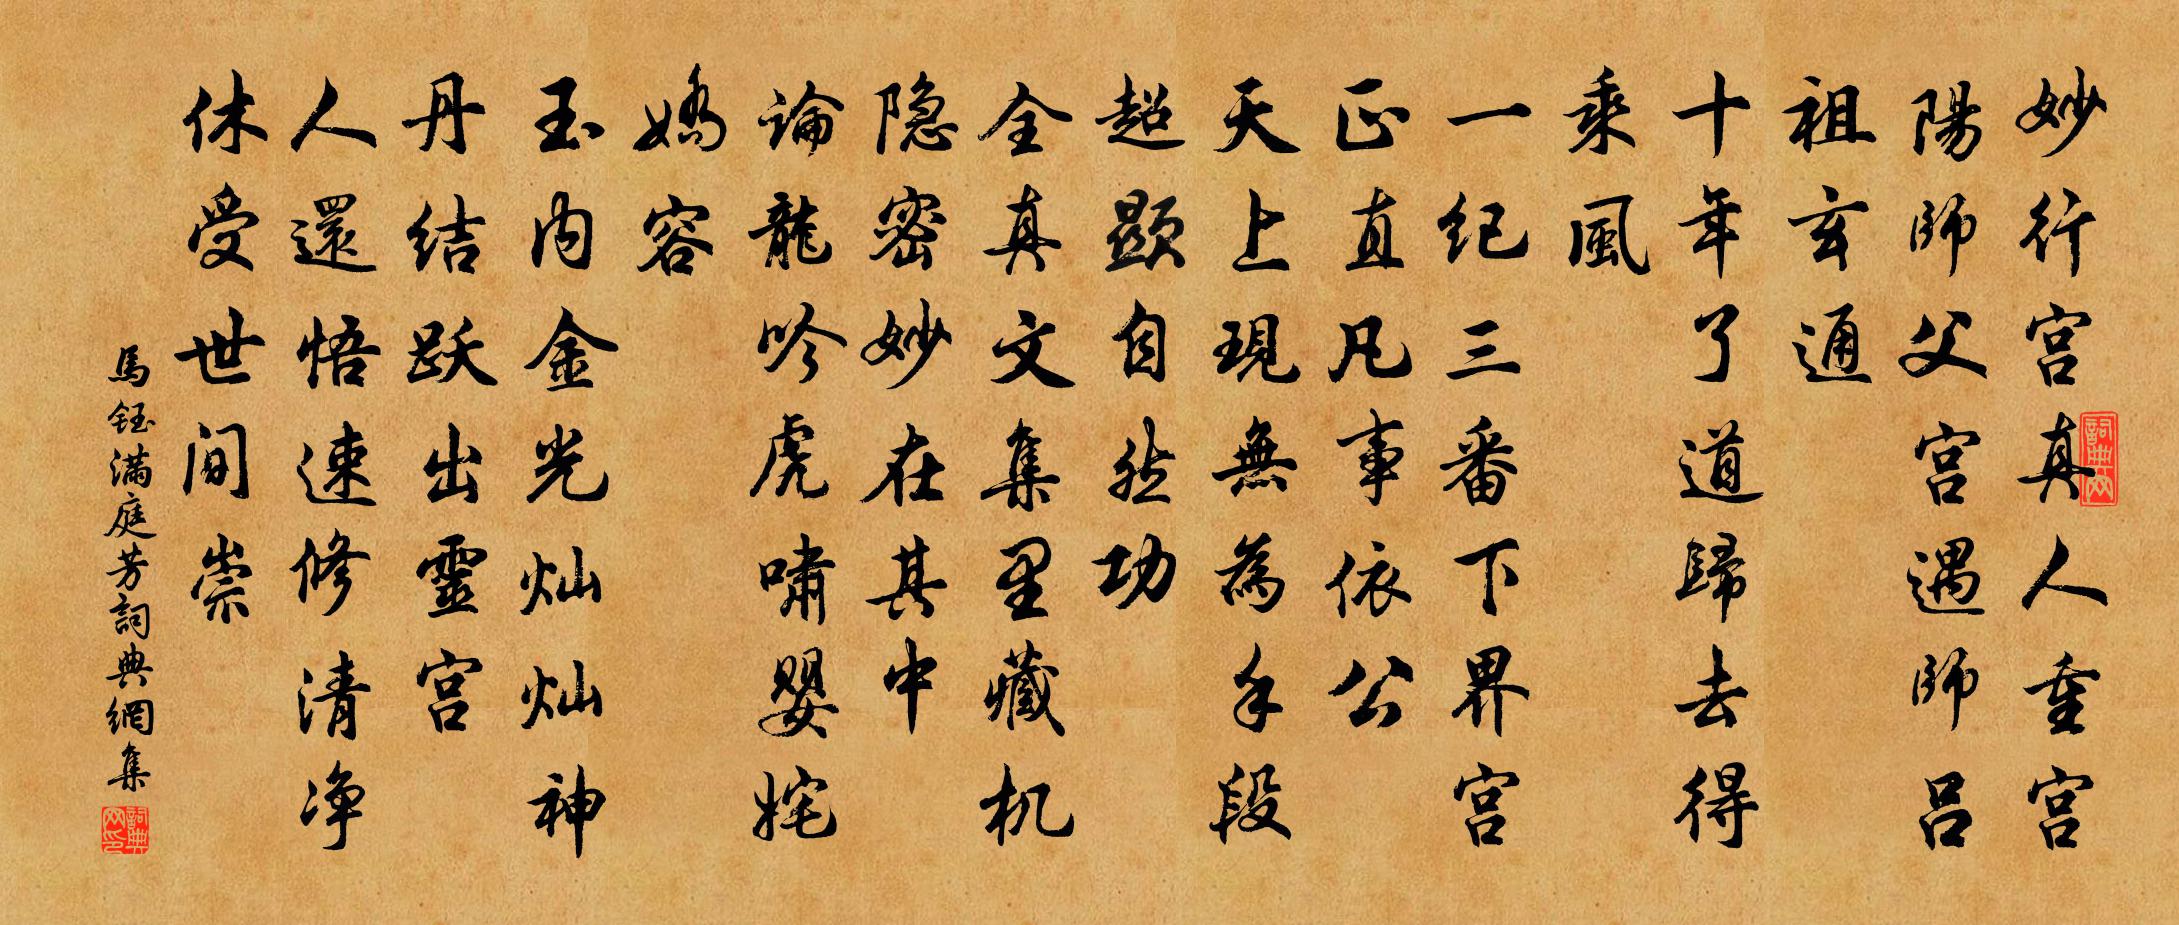 妙行宫真人重宫
陽師父宫遇師吕
祖玄通
十年了道歸去得
乘風
一纪三番下界宫
正直凡事依公
天上現無為手段
超顯自然功
全真文集里藏机
隐密妙在其中
論龍吟虎嘯嬰姹
嬌容
玉内金光灿灿神
丹结跃出靈宫
人還悟速修清净
休受世间崇
馬钰满庭芳詞典網集
詞典网
詞典网印